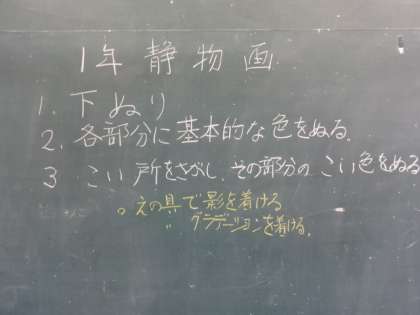 1年 静物画
1. 下ぬり
2. 各部分に基本的な色をぬる.
3 こい所をさがし、その部分のこい色をぬる
○ えの具で影を着ける
〃 グラデーションを着ける.